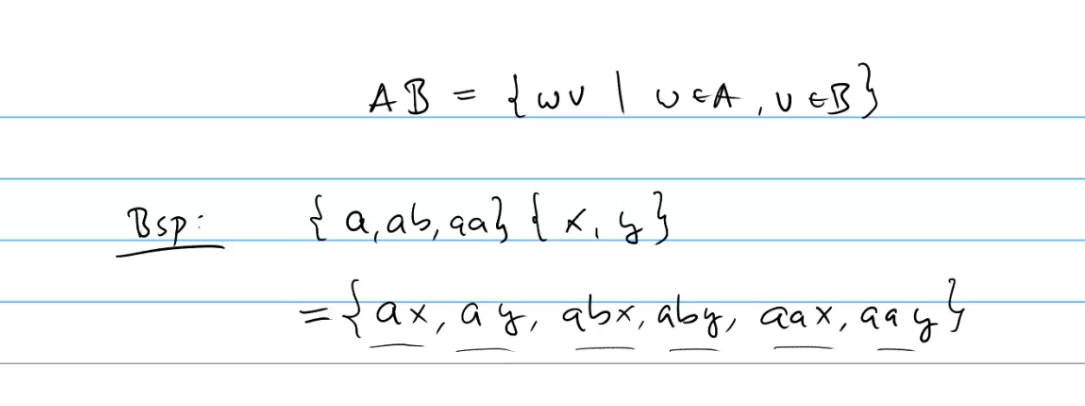 AB = {wv | w∈A, v∈B}
Bsp: {a, ab, aa} {x, y}
= {ax, ay, abx, aby, aax, aay}